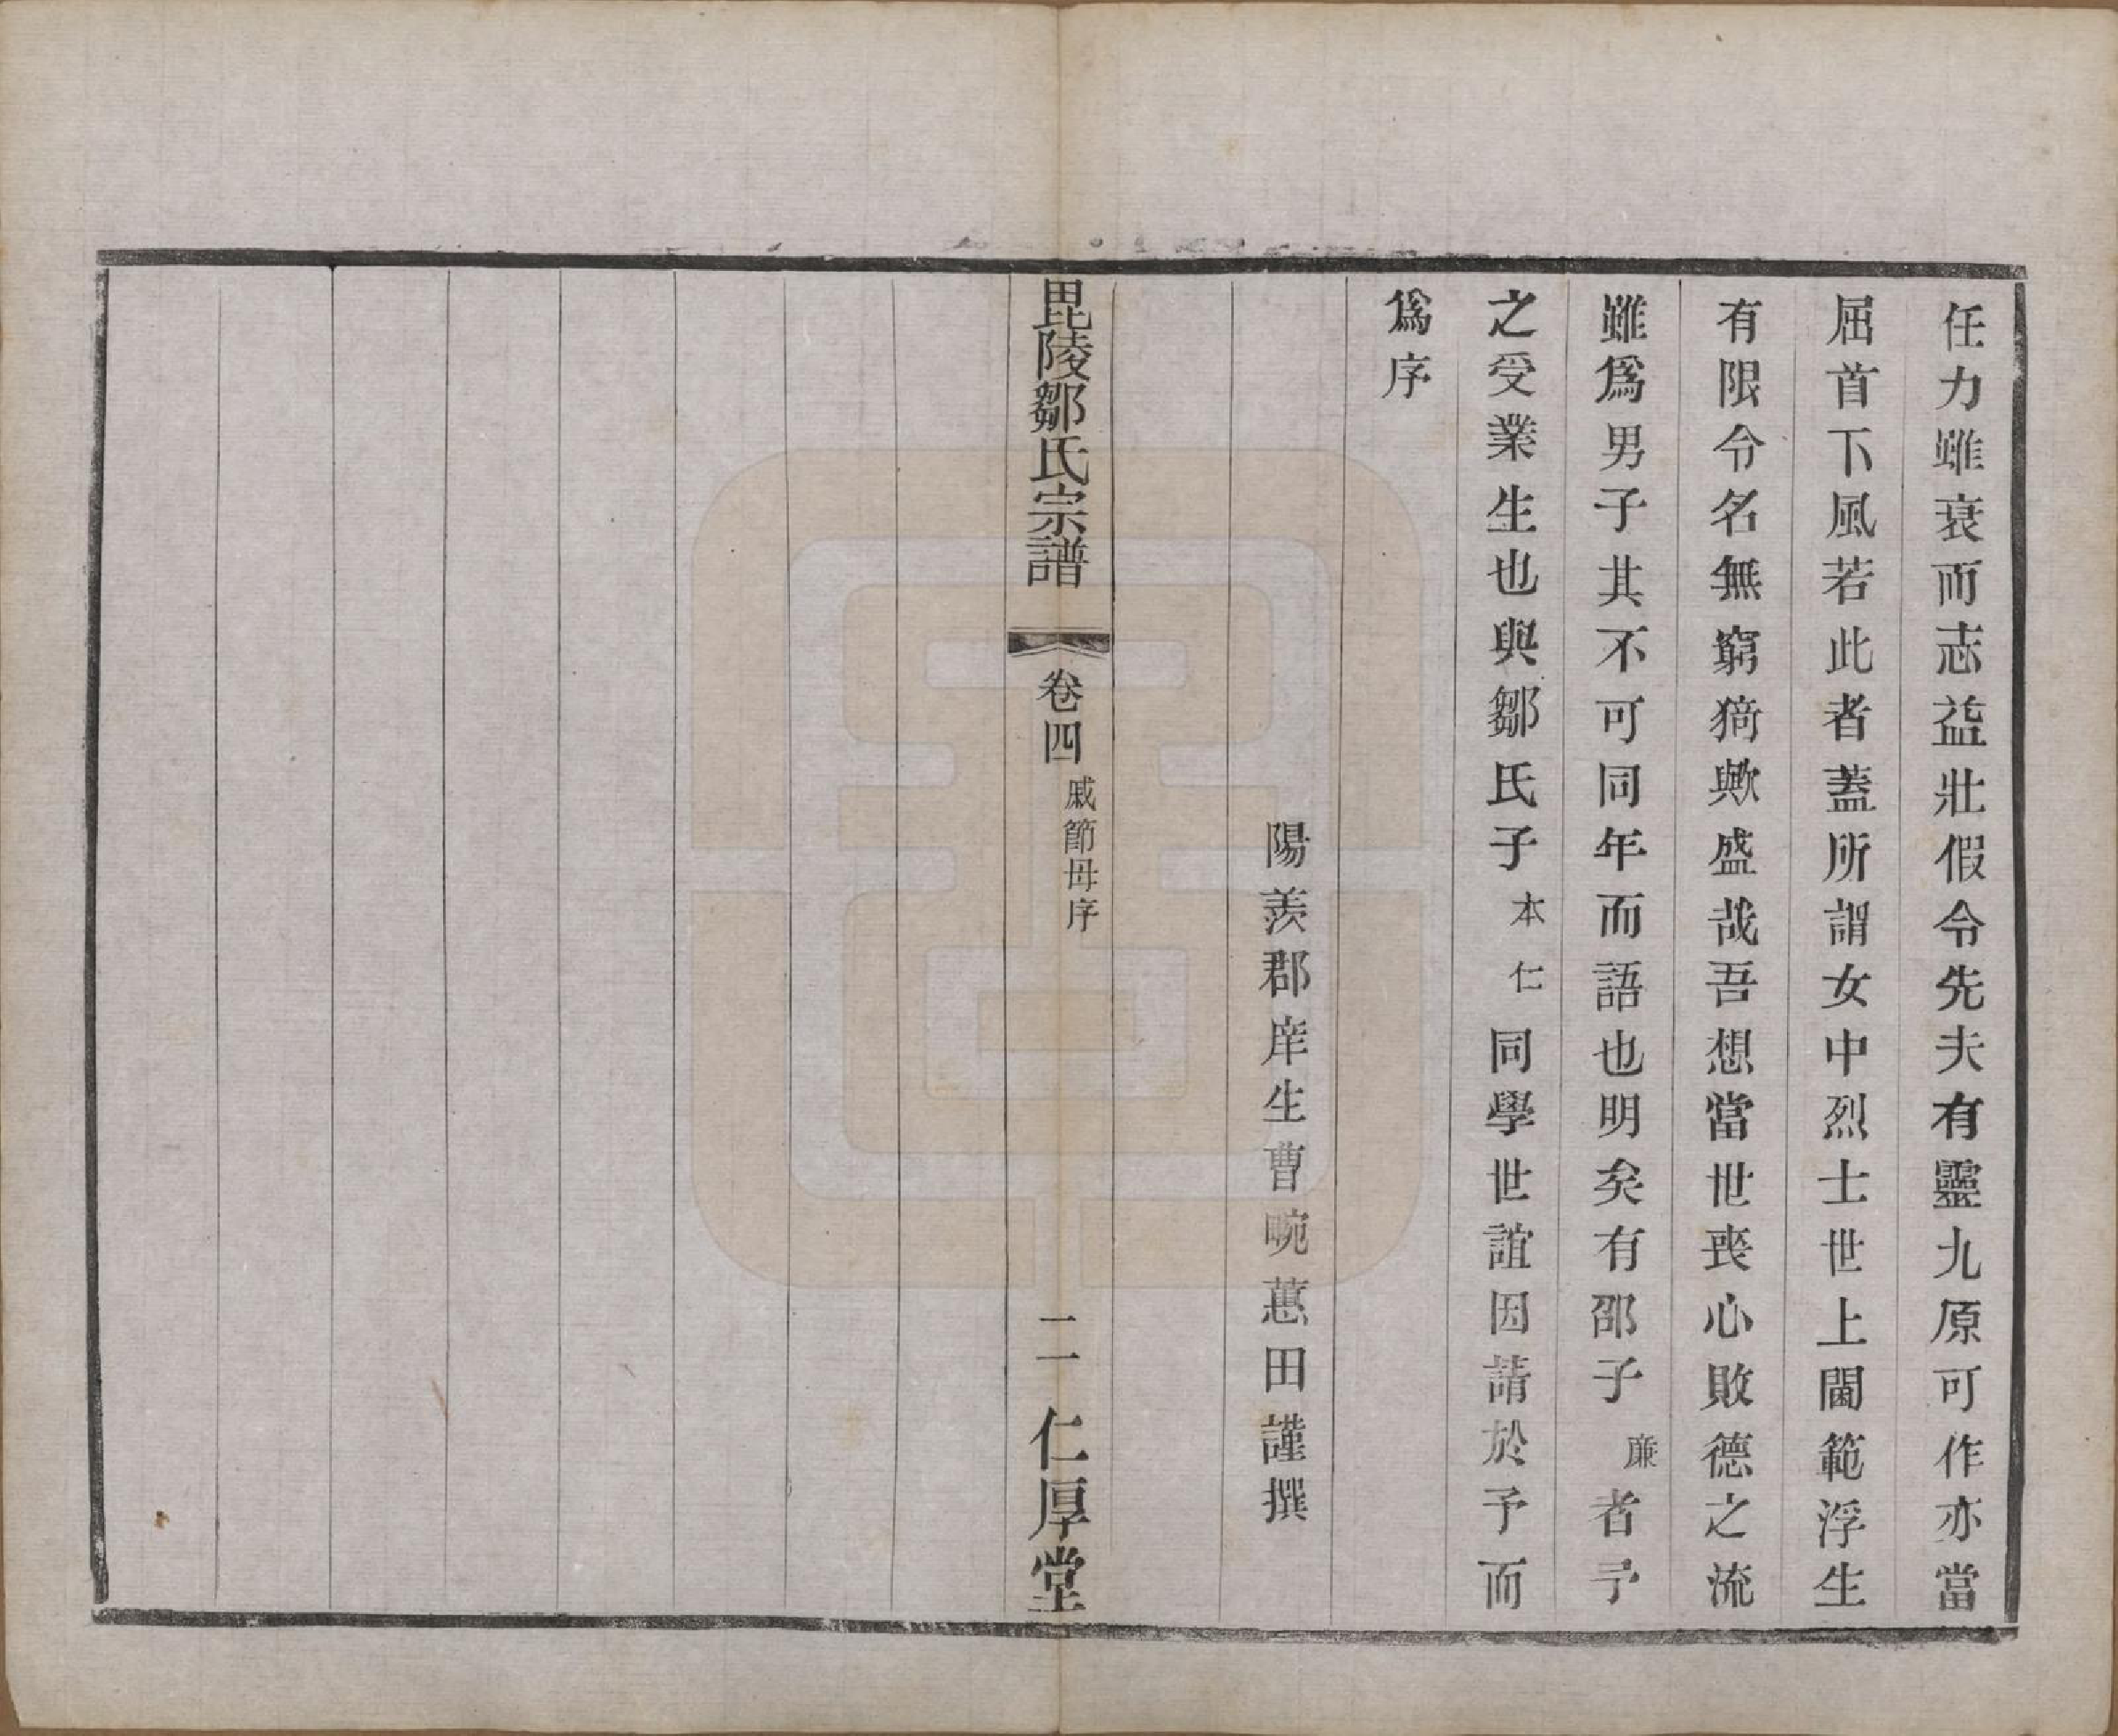 任力雖衰而志益壯假令先夫有靈九原可作亦當
屈首下風若此者蓋所謂女中烈士世上閫範浮生
有限令名無窮猗歟盛哉吾想當世喪心敗德之流
雖爲男子其不可同年而語也明矣有邵子廉者予
之受業生也與鄒氏子本仁同學世誼因請於予而
爲序
陽羨郡庠生曹畹蕙田謹撰
毘陵鄒氏宗譜
卷四
戚節母序
二
仁厚堂